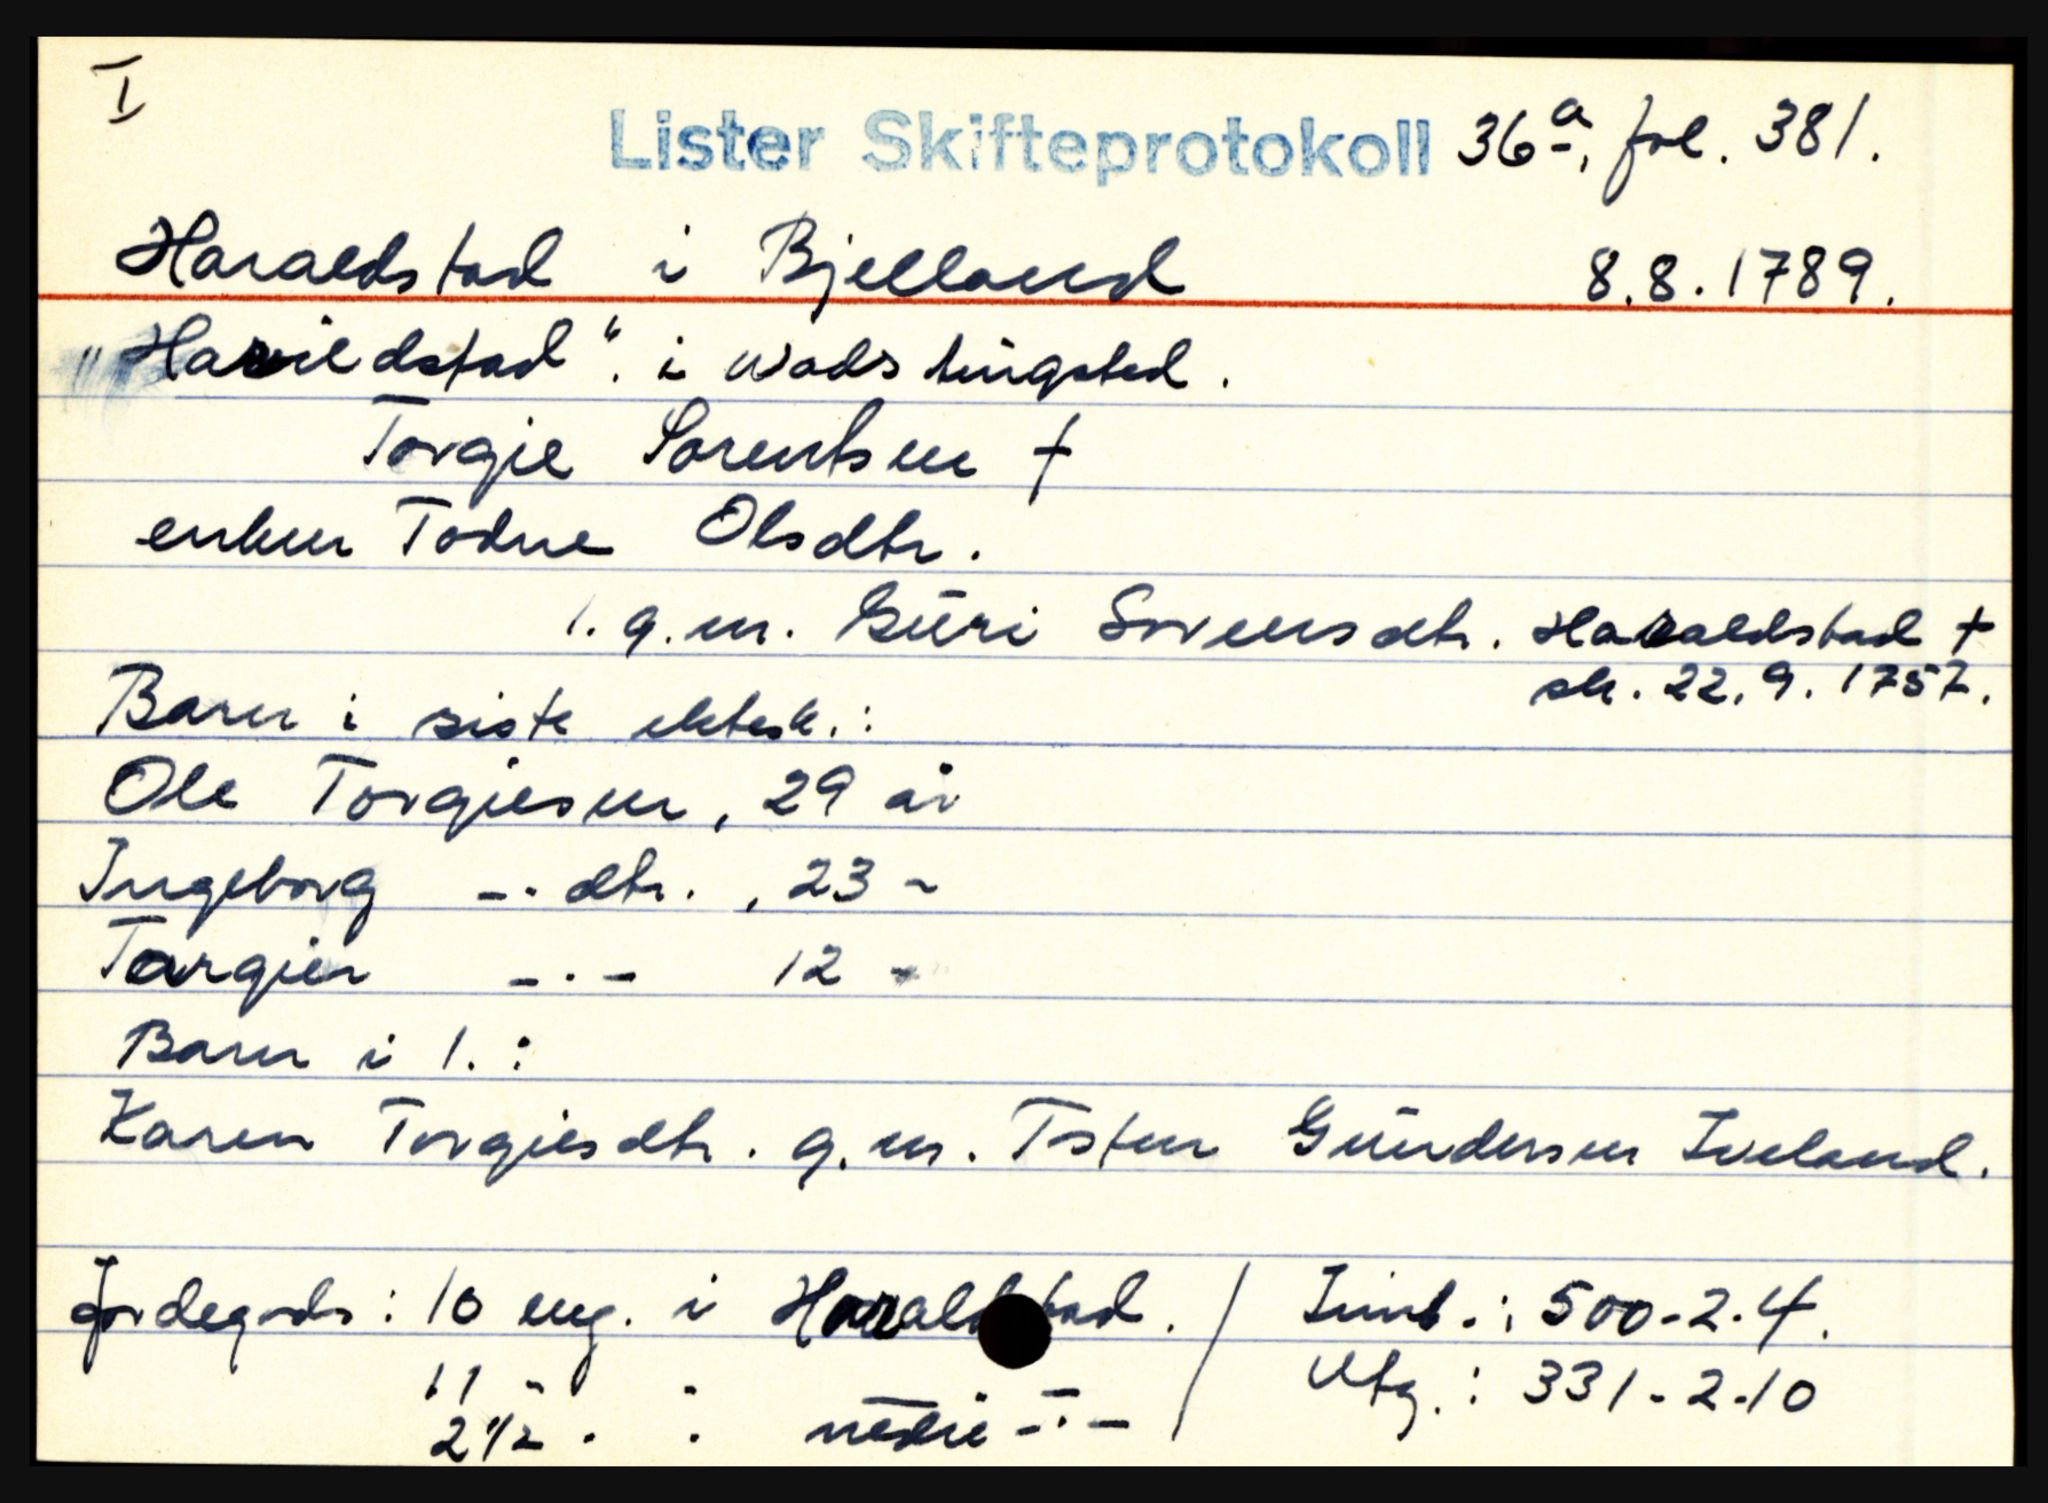 I
Lister Skifteprotokoll 36a, fol. 381.
Haraldstad i Bjelland 8.8.1789.
"Harildstad". i wads tingsted.
Torgie Sorentsen †
enken Todne Olsdtr.
1. g.m. Gŭri Sorensdtr. Haraldstad †
sk. 22.9.1757.
Barn i siste ektesk.:
Ole Torgiesen, 29 år
Ingeborg -"- dtr., 23 -
Targier -"- 12 -
Barn i 1.:
Karen Torgiesdtr. g.m. Tosten Gŭndersen Iveland.
Jordegods: 10 eng. i Haraldstad. / Innb.: 500-2-4.
11 " " -"- Utg.: 331-2-10
2 1/2 " " nedre -"-